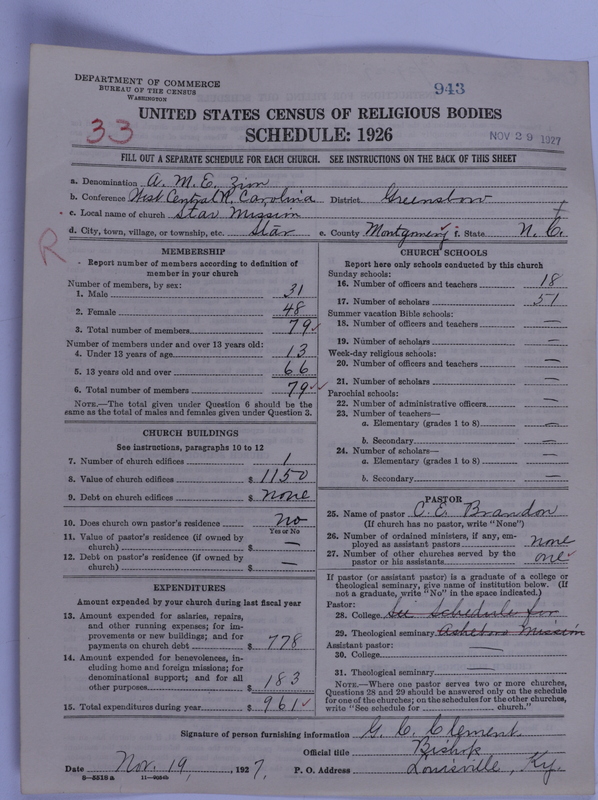 DEPARTMENT OF COMMERCE
BUREAU OF THE CENSUS
WASHINGTON
943
UNITED STATES CENSUS OF RELIGIOUS BODIES
33
SCHEDULE: 1926
NOV 29 1927
FILL OUT A SEPARATE SCHEDULE FOR EACH CHURCH. SEE INSTRUCTIONS ON THE BACK OF THIS SHEET
a. Denomination A. M. E. Zion
b. Conference West Central N. Carolina District Greensboro
c. Local name of church Star Mission
d. City, town, village, or township, etc. Star e. County Montgomery f. State N. C.
R
MEMBERSHIP
Report number of members according to definition of
member in your church
Number of members, by sex:
1. Male 31
2. Female 48
3. Total number of members 79
Number of members under and over 13 years old:
4. Under 13 years of age 13
5. 13 years old and over 66
6. Total number of members 79
NOTE.—The total given under Question 6 should be the
same as the total of males and females given under Question 3.
CHURCH BUILDINGS
See instructions, paragraphs 10 to 12
7. Number of church edifices 1
8. Value of church edifices $ 1150
9. Debt on church edifices $ none
10. Does church own pastor's residence no
Yes or No
11. Value of pastor's residence (if owned by
church) $ —
12. Debt on pastor's residence (if owned by
church) $ —
EXPENDITURES
Amount expended by your church during last fiscal year
13. Amount expended for salaries, repairs,
and other running expenses; for im-
provements or new buildings; and for
payments on church debt $ 778
14. Amount expended for benevolences, in-
cluding home and foreign missions; for
denominational support; and for all
other purposes $ 183
15. Total expenditures during year $ 961
CHURCH SCHOOLS
Report here only schools conducted by this church
Sunday schools:
16. Number of officers and teachers 18
17. Number of scholars 51
Summer vacation Bible schools:
18. Number of officers and teachers —
19. Number of scholars —
Week-day religious schools:
20. Number of officers and teachers —
21. Number of scholars —
Parochial schools:
22. Number of administrative officers —
23. Number of teachers—
a. Elementary (grades 1 to 8) —
b. Secondary —
24. Number of scholars—
a. Elementary (grades 1 to 8) —
b. Secondary —
PASTOR
25. Name of pastor C. E. Brandon
(If church has no pastor, write "None")
26. Number of ordained ministers, if any, em-
ployed as assistant pastors none
27. Number of other churches served by the
pastor or his assistants one
If pastor (or assistant pastor) is a graduate of a college or
theological seminary, give name of institution below. (If
not a graduate, write "No" in the space indicated.)
Pastor:
28. College See Schedule for
29. Theological seminary Asheboro Mission
Assistant pastor:
30. College —
31. Theological seminary —
NOTE.—Where one pastor serves two or more churches,
Questions 28 and 29 should be answered only on the schedule
for one of the churches; on the schedules for the other churches,
write "See schedule for church."
Signature of person furnishing information G. C. Clement
Official title Bishop
Date Nov. 19, 1927, P. O. Address Louisville, Ky.